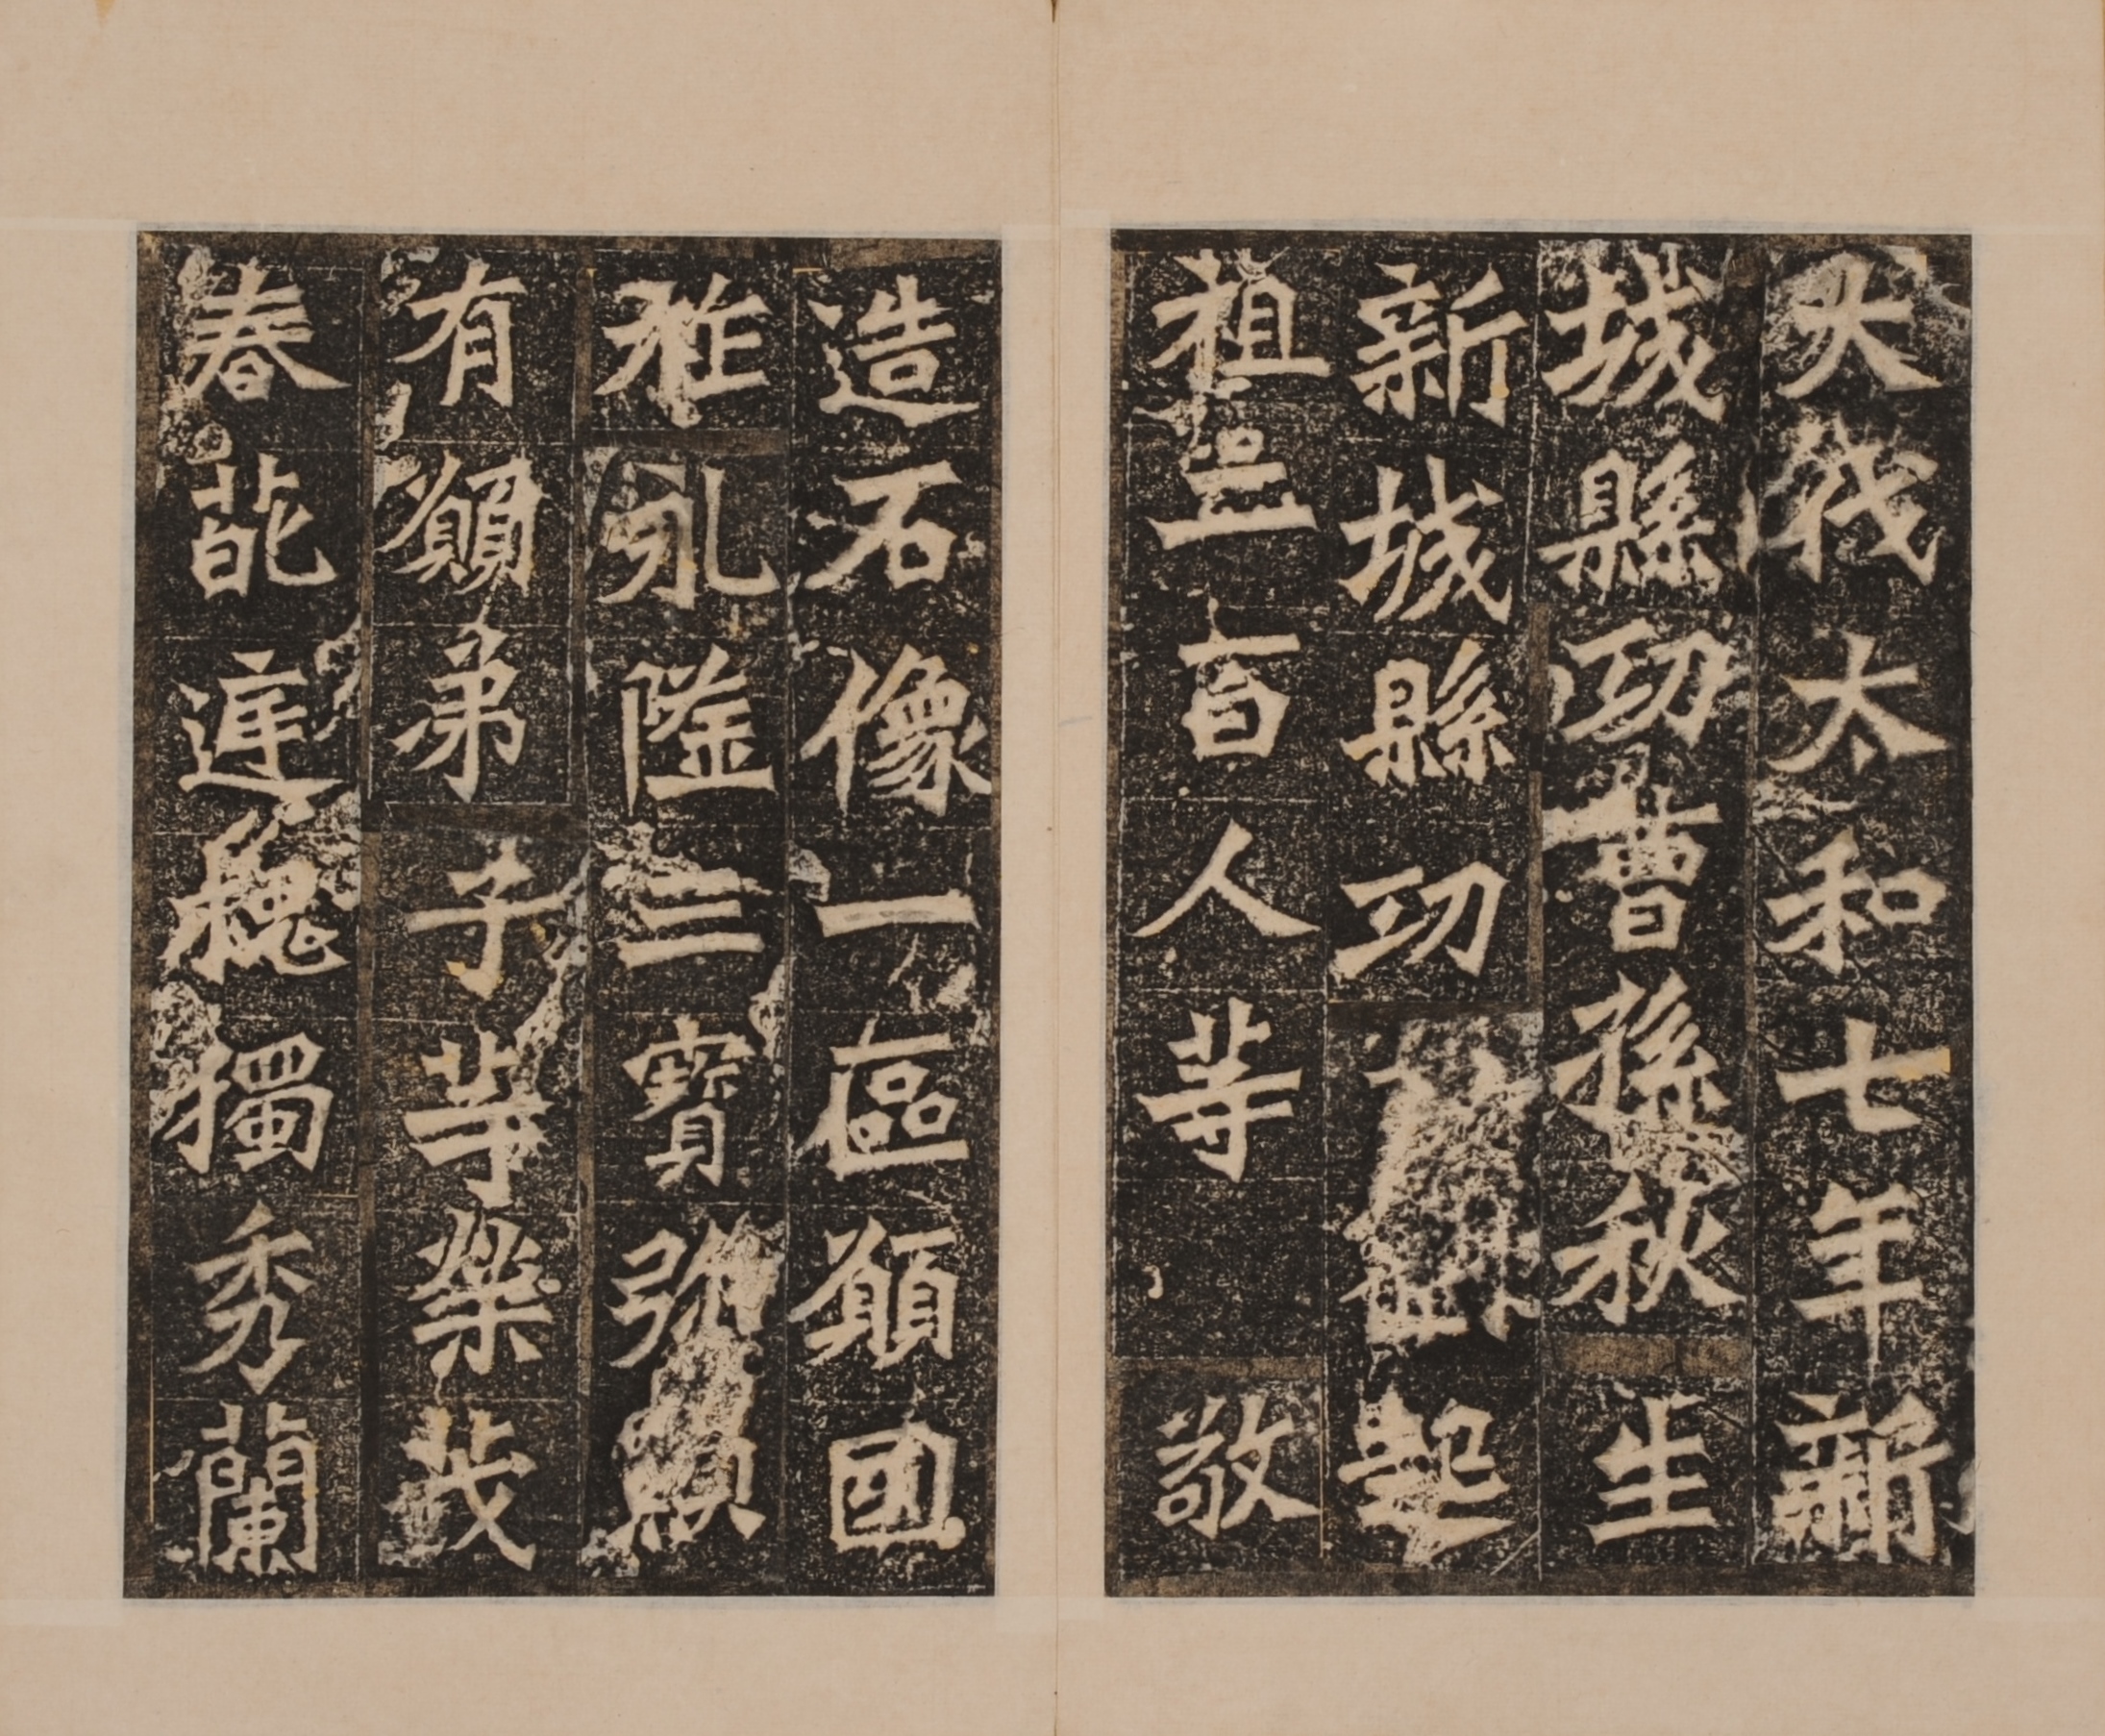 大代太和七年新
城縣功曹孫秋生
新城縣功起
祖二百人等敬
造石像一區願國
祚永隆三寶彌顯
有願弟子等榮茂
春葩庭槐獨秀蘭